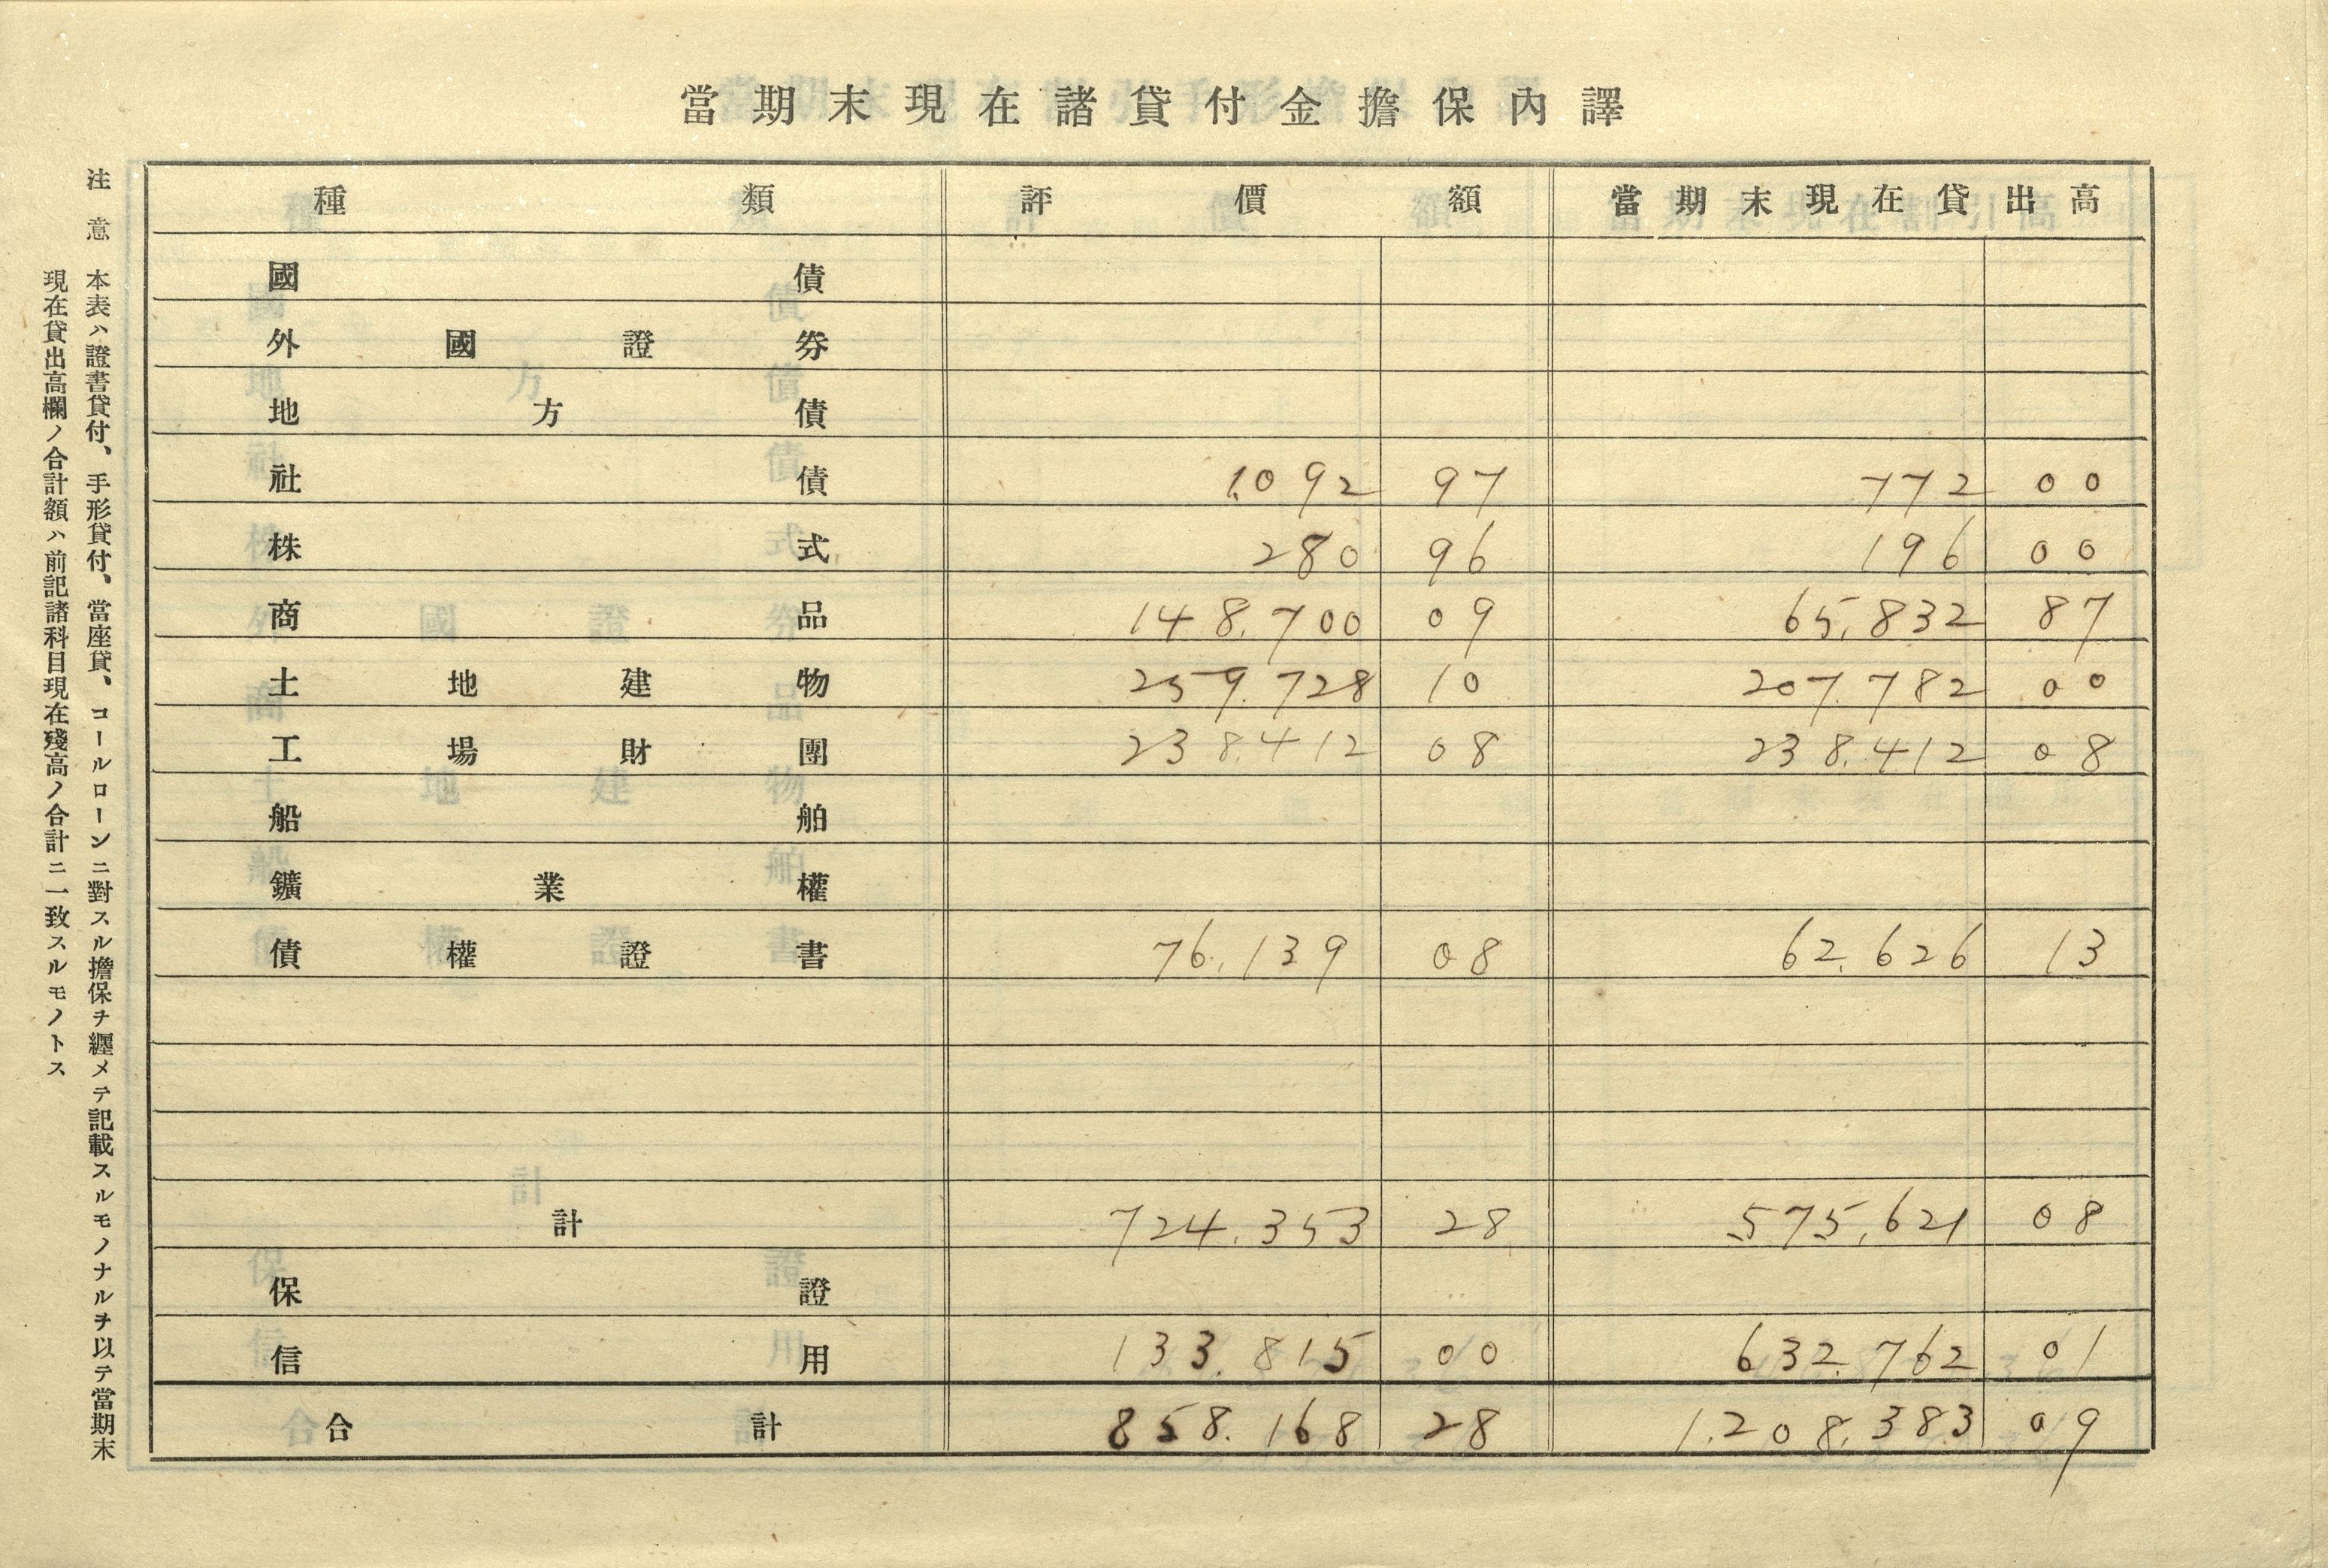 當期末現在諸貸付金擔保內譯
種類 評價額 當期末現在貸出高
國債
外國證券
地方債
社債 1.092 97 772 00
株式 280 96 196 00
商品 148.700 09 65.832 87
土地建物 259.728 10 207.782 00
工場財團 238.412 08 238.412 08
船舶
鑛業權
債權證書 76.139 08 62.626 13
計 724.353 28 575.621 08
保證
信用 133.815 00 632.762 01
合計 858.168 28 1.208.383 09
注意 本表ハ證書貸付、手形貸付、當座貸、コールローンニ對スル擔保チ纒メテ記載スルモノナルヲ以テ當期末
現在貸出高欄ノ合計額ハ前記諸科目現在殘高ノ合計ニ一致スルモノトス